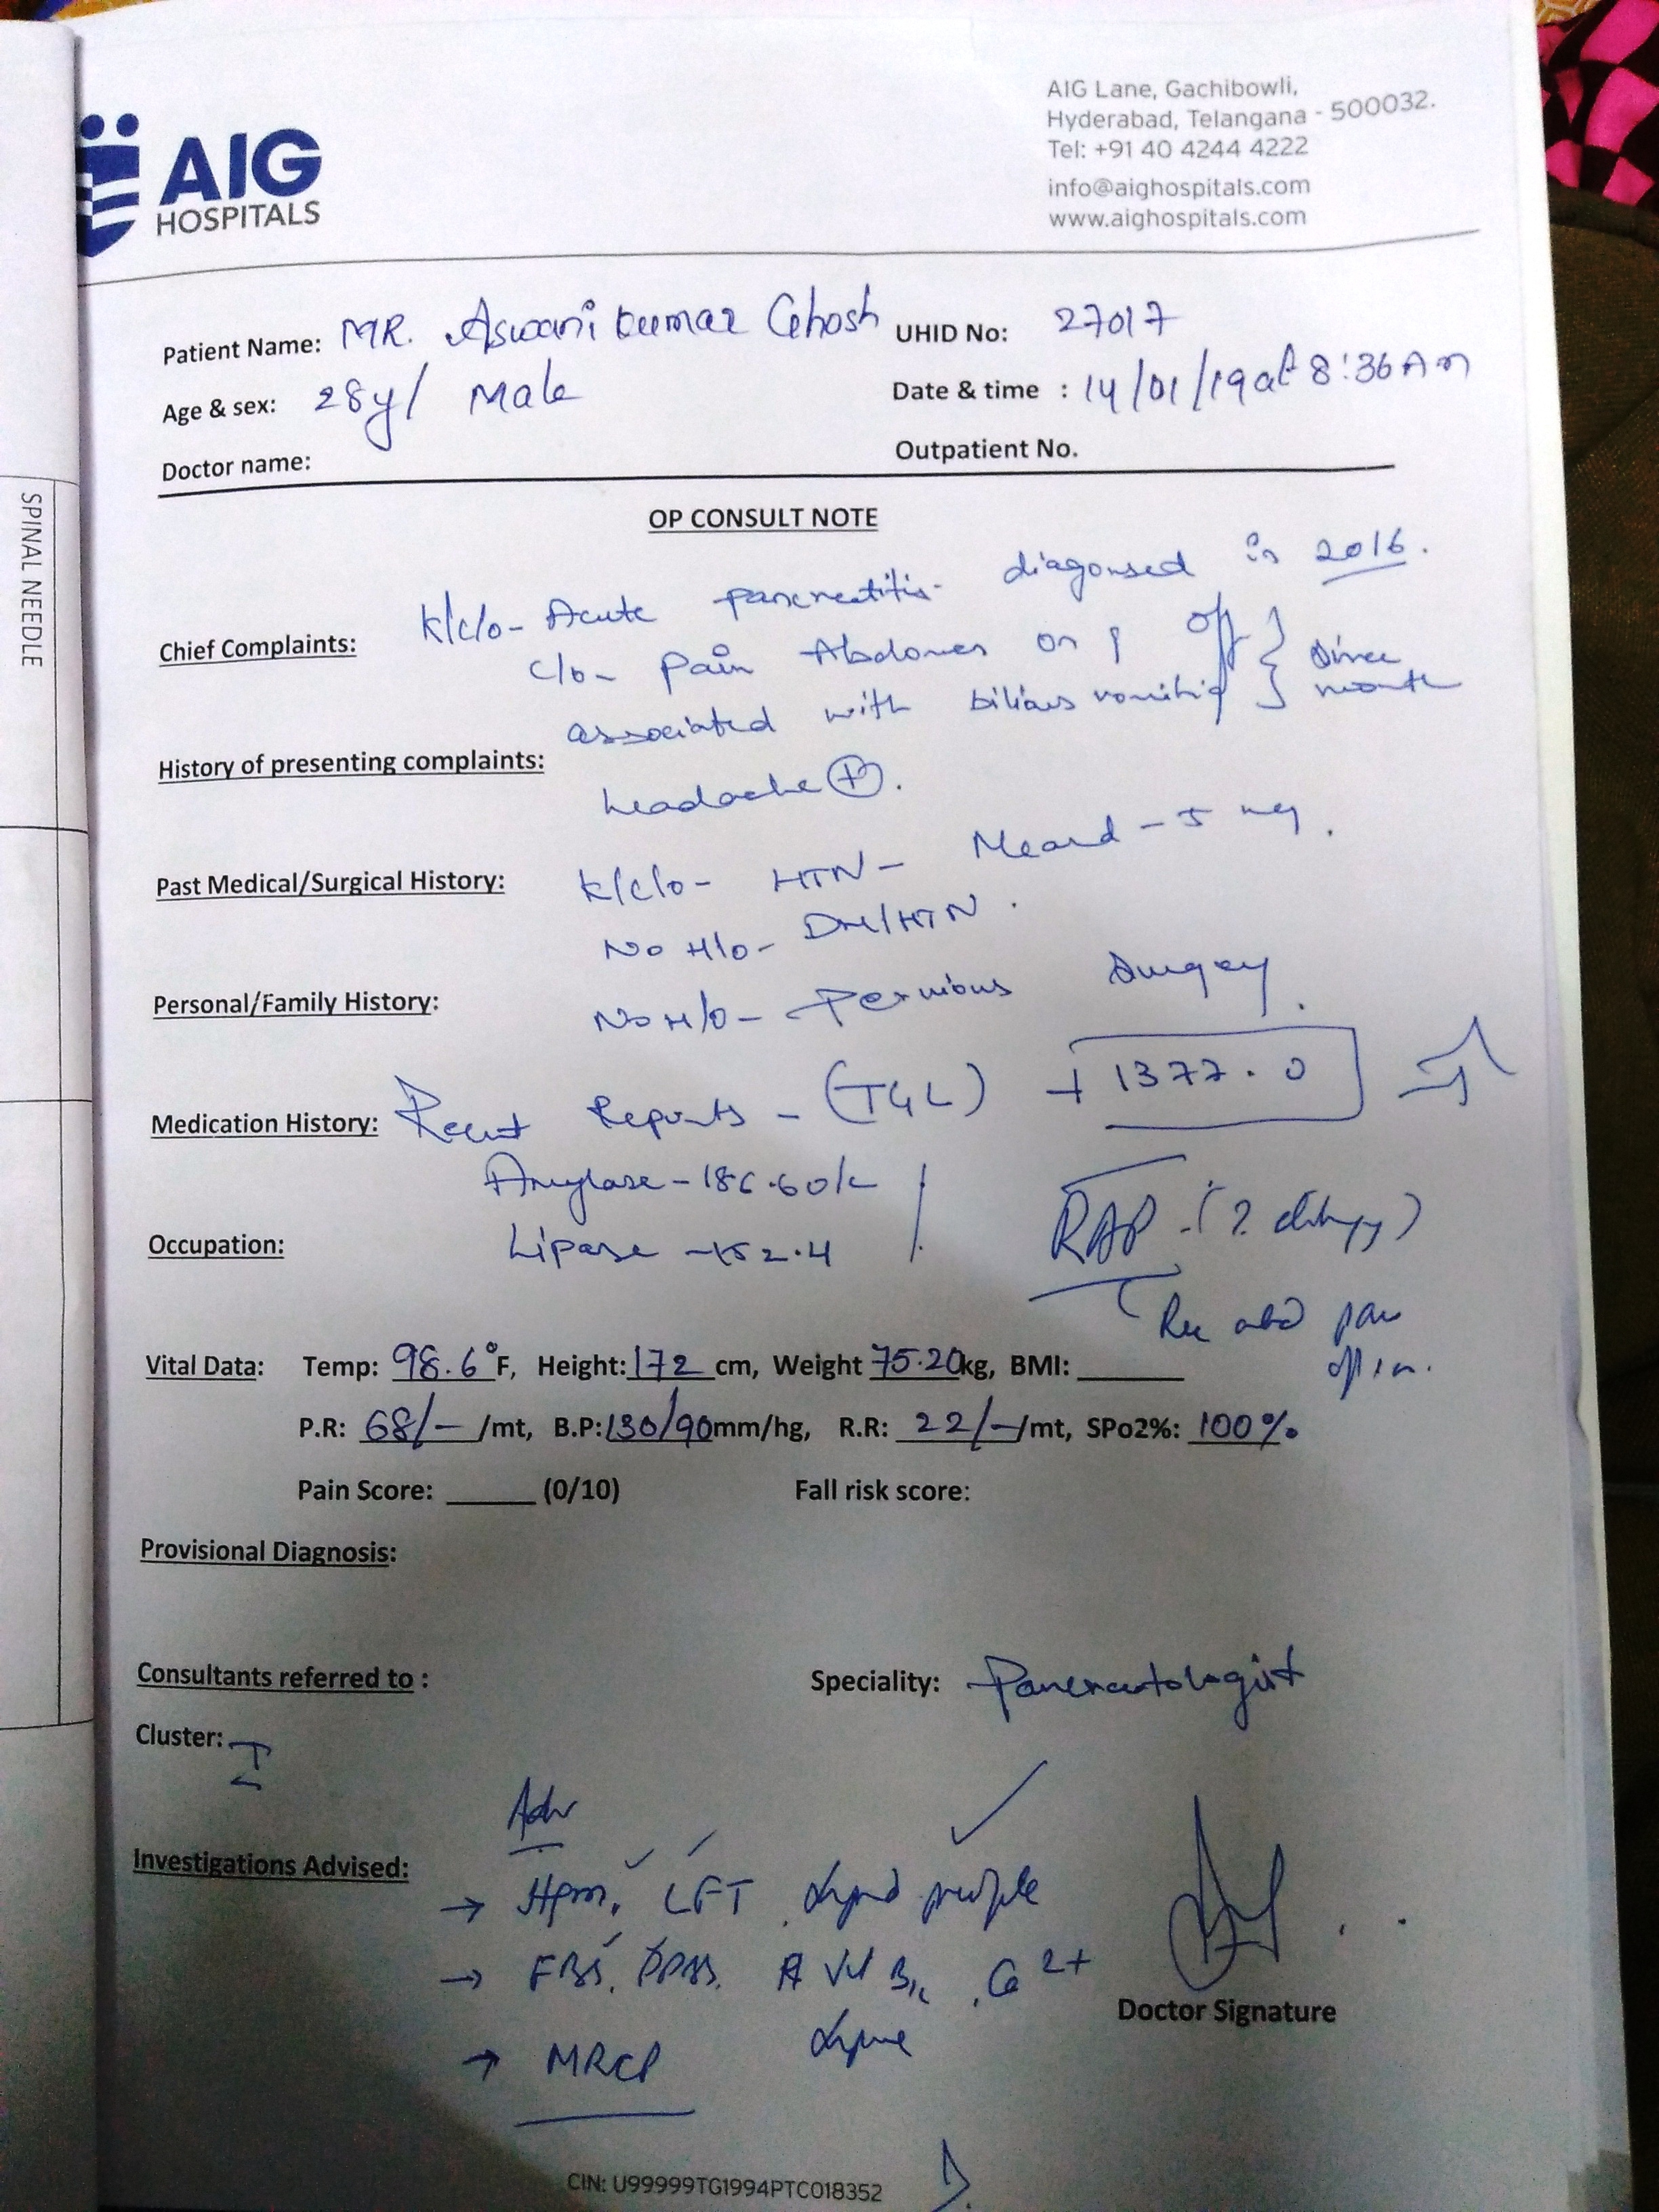 AIG
HOSPITALS
AIG Lane, Gachibowli,
Hyderabad, Telangana - 500032.
Tel: +91 40 4244 4222
info@aighospitals.com
www.aighospitals.com
SPINAL NEEDLE
Patient Name: MR. Aswani kumar Ghosh UHID No: 27017
Age & sex: 28y/ Male Date & time : 14/01/19 at 8:36 Am
Doctor name: Outpatient No.
OP CONSULT NOTE
K/c/o - Acute pancreatitis diagonsed in 2016.
Chief Complaints: c/o - Pain Abdomen on & off } Since month
associated with bilious vomiting
History of presenting complaints:
headache (+).
Past Medical/Surgical History: K/c/o - HTN - - 5 mg.
No H/o - DM/HTN.
Personal/Family History: No H/o - Pervious Surgery.
Medication History: Recent Reports - (TGL) 1377.0
Amylase -
Occupation: Lipase - RAP
abd
Vital Data: Temp: 98.6°F, Height: 172 cm, Weight 75.20kg, BMI:
P.R: 68/- /mt, B.P: 130/90mm/hg, R.R: 22/-/mt, SPo2%: 100%
Pain Score: (0/10) Fall risk score:
Provisional Diagnosis:
Consultants referred to : Speciality: Pancreatologist
Cluster: I
Adv
Investigations Advised:
→ LFT, Lipid profile
→ FBS, PPBS, B12, Ca 2+
→ MRCP
Doctor Signature
CIN: U99999TG1994PTC018352